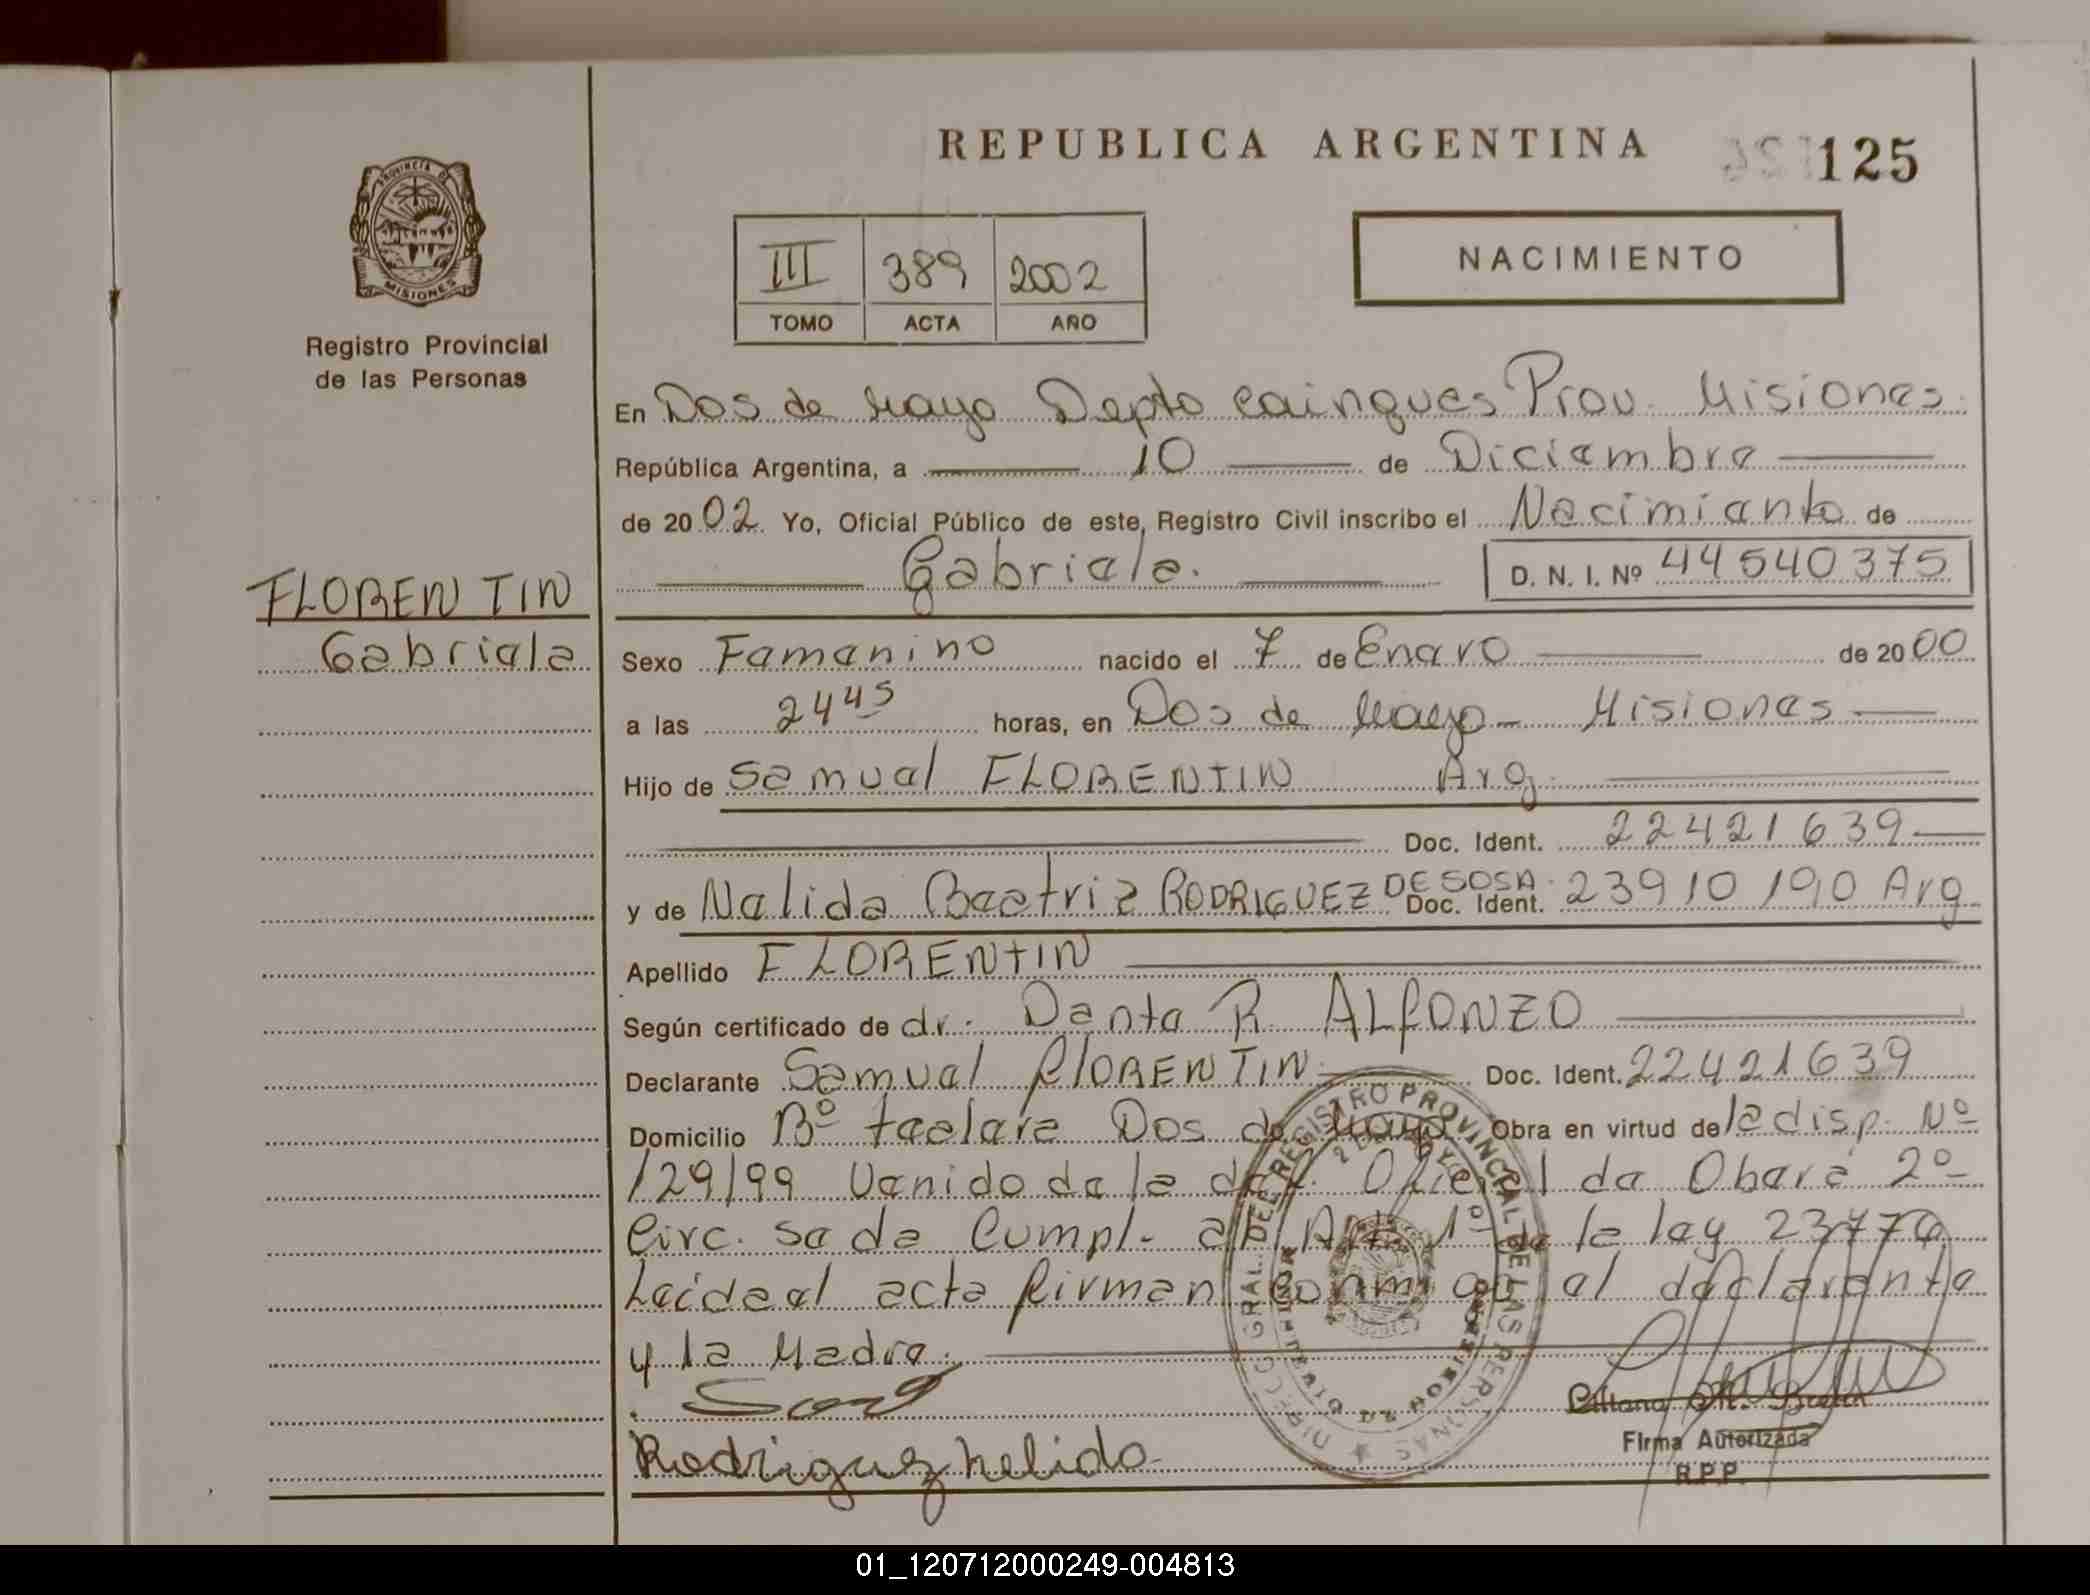 REPUBLICA ARGENTINA
125
PROVINCIA DE
MISIONES
Registro Provincial
de las Personas
III 389 2002
TOMO ACTA AÑO
NACIMIENTO
En Dos de Mayo Depto Cainguas Prov. Misiones
República Argentina, a 10 de Diciembre
de 2002. Yo, Oficial Público de este, Registro Civil inscribo el Nacimiento de
Gabriela. D. N. I. Nº 44540375
FLORENTIN
Gabriela
Sexo Femenino nacido el 7 de Enero de 2000
a las 2445 horas, en Dos de Mayo - Misiones
Hijo de Samuel FLORENTIN Arg.
Doc. Ident. 22421639
y de Nelida Beatriz RODRIGUEZ DE SOSA. Doc. Ident. 23910190 Arg.
Apellido FLORENTIN
Según certificado de dr. Dante R. ALFONZO
Declarante Samuel FLORENTIN Doc. Ident. 22421639
Domicilio Bº Dos de Mayo Obra en virtud de la disp. Nº
129/99 Venido de la Oficial de Obera 2º
Circ. se da Cumpl. al Art. 1º de la ley 23776
Leida el acta firman conmigo el declarante
y la Madre.
Rodriguez Nelida
Firma Autorizada
R.P.P.
DIRECC. GRAL. DEL REGISTRO PROVINCIAL DE LAS PERSONAS
01_120712000249-004813